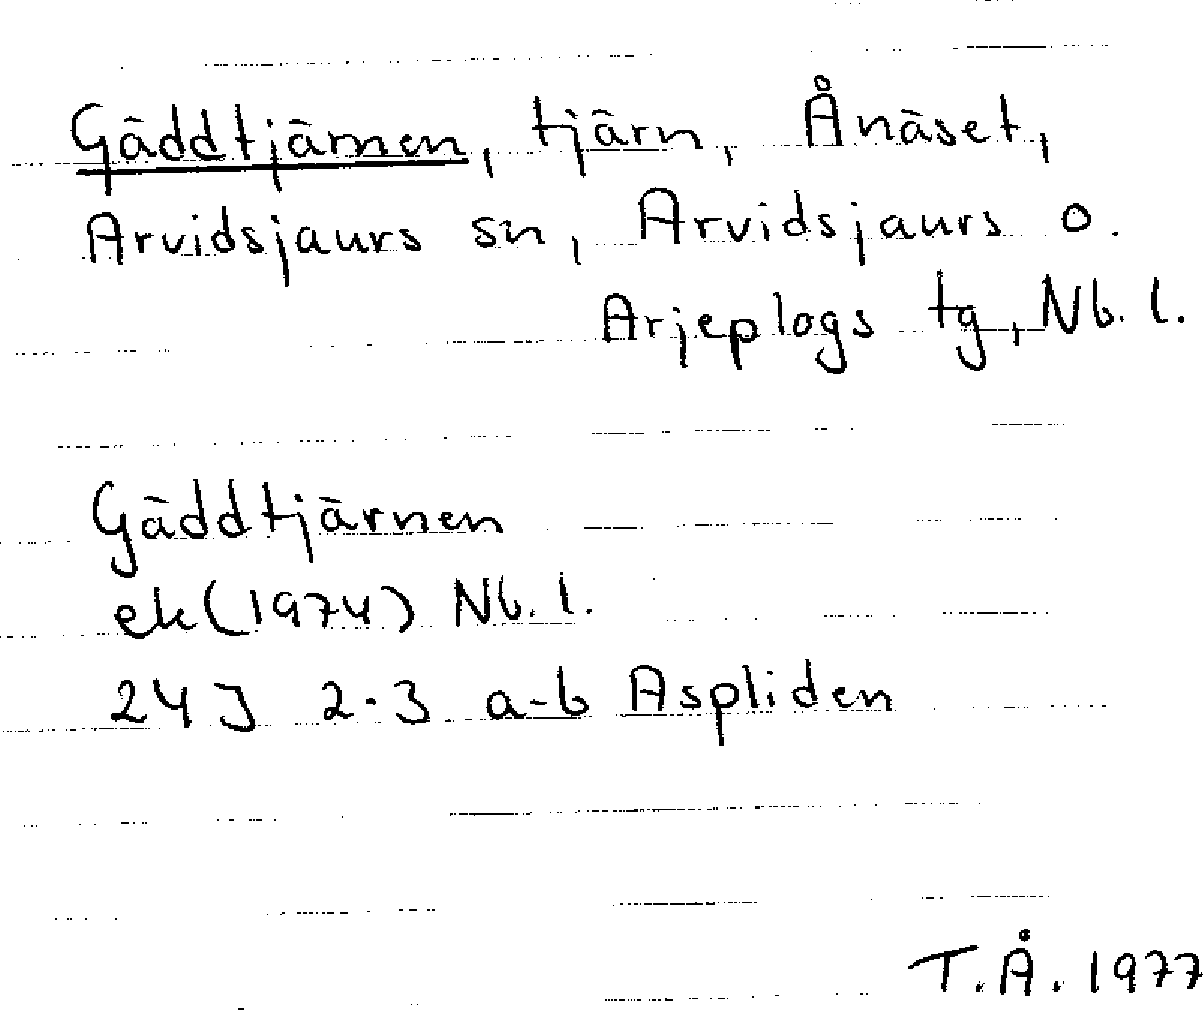 Gäddtjärnen, tjärn, Ånäset,
Arvidsjaurs sn, Arvidsjaurs o.
Arjeplogs tg, Nb. l.
Gäddtjärnen
ek (1974) Nb. l.
24 J 2-3 a-b Aspliden
T.Å. 1977